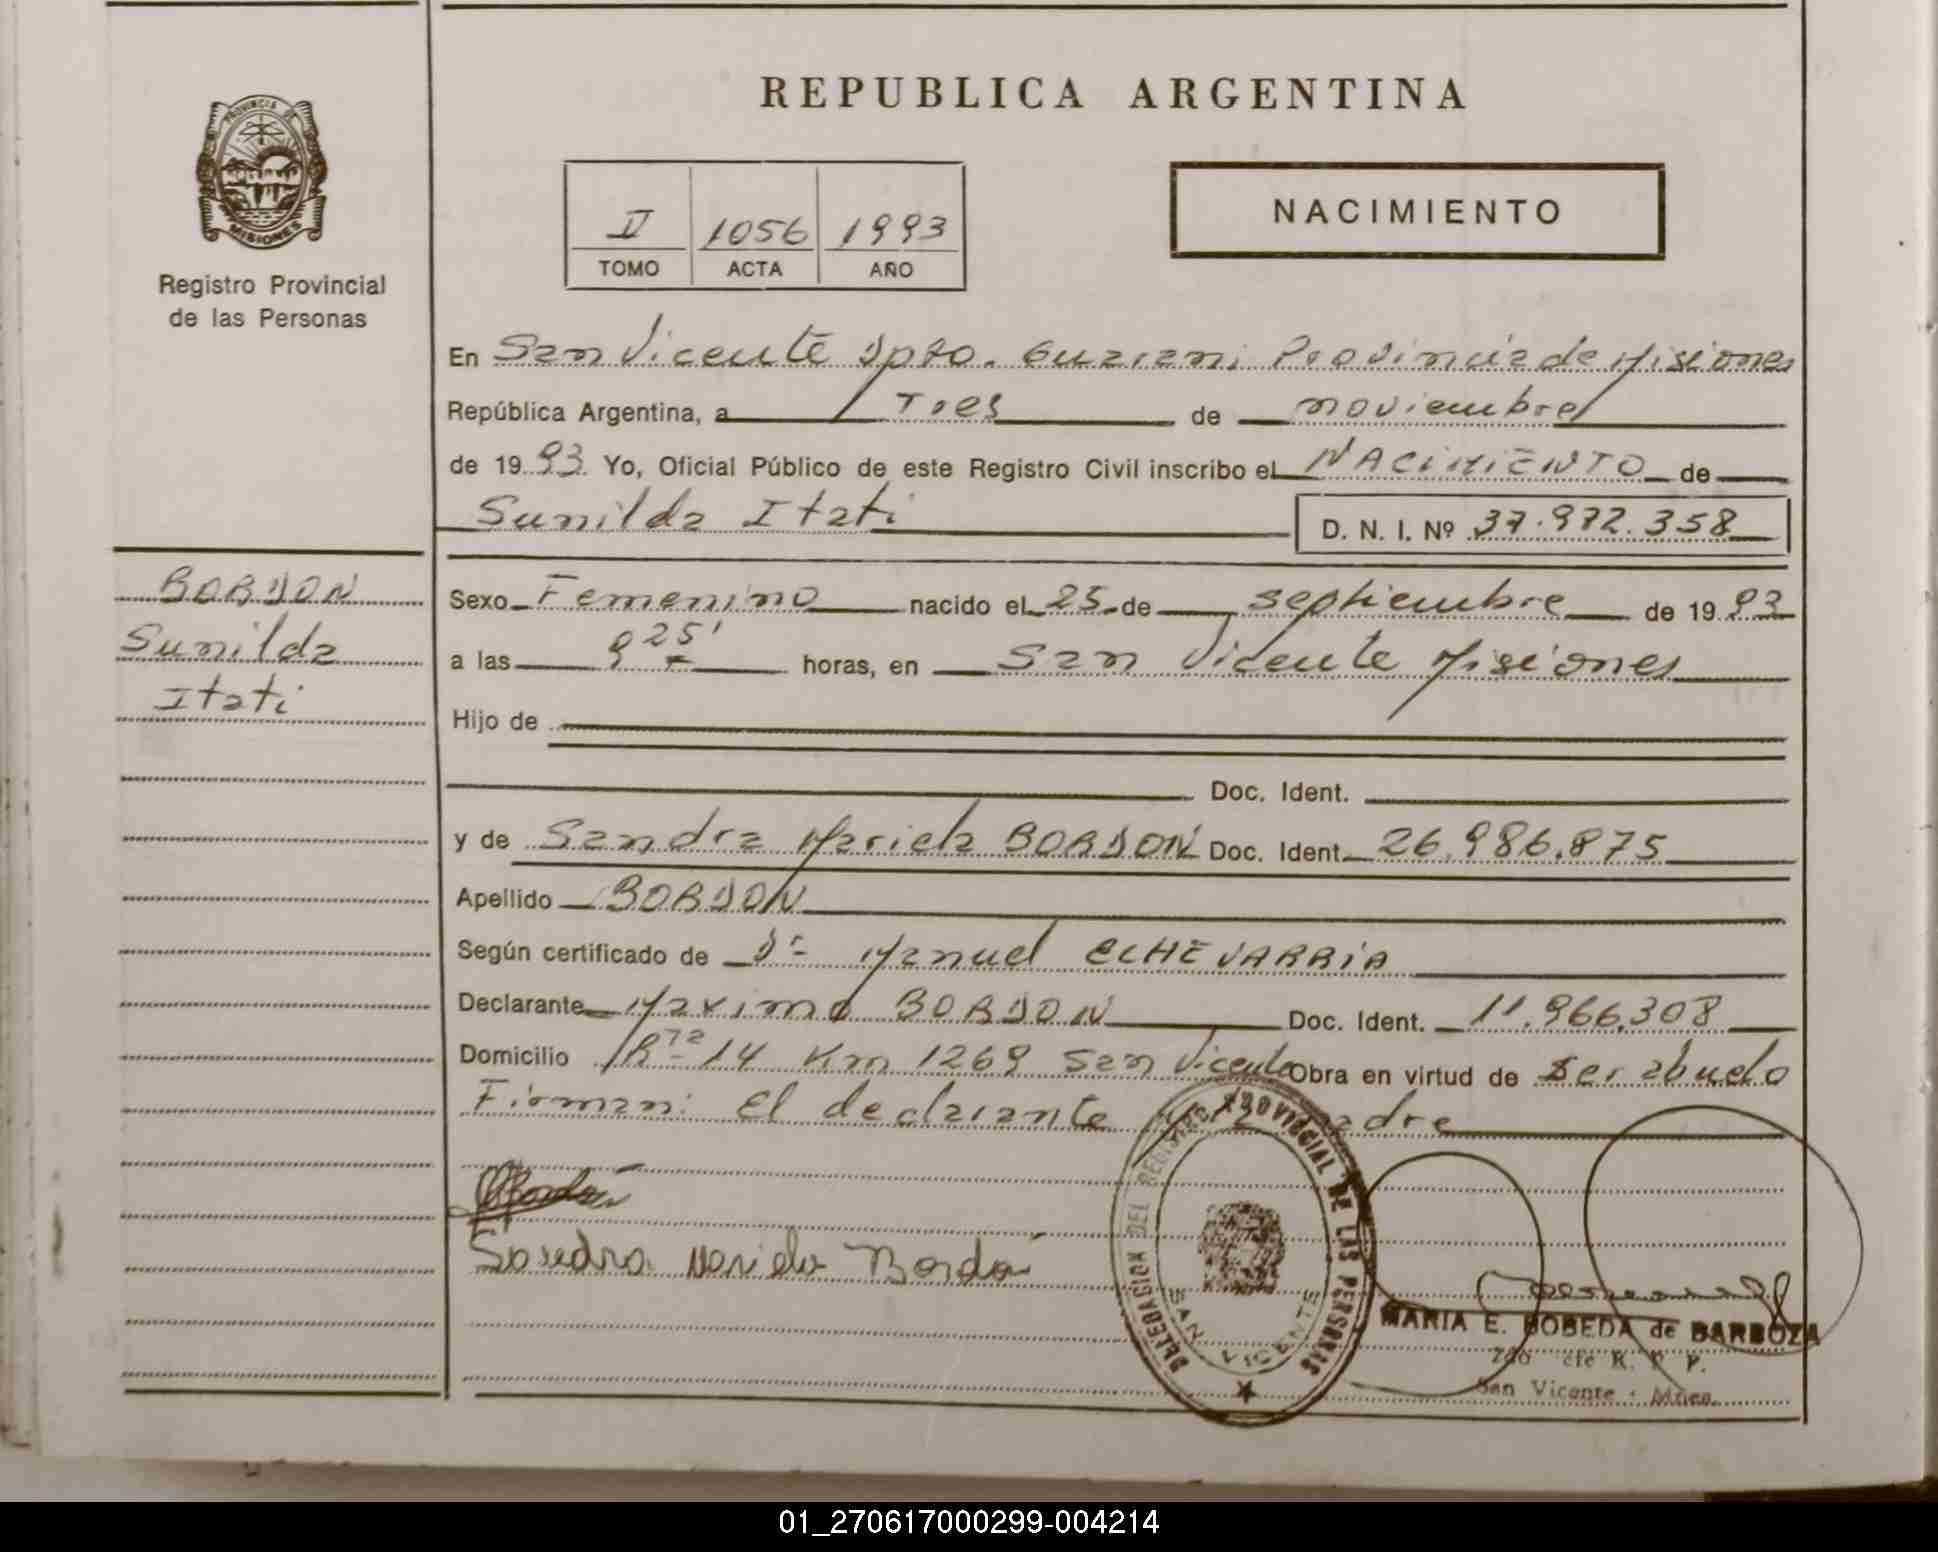 REPUBLICA ARGENTINA
PROVINCIA DE
MISIONES
Registro Provincial
de las Personas
II 1056 1993
TOMO ACTA AÑO
NACIMIENTO
En San Vicente Dpto. Guarani Provincia de Misiones
República Argentina, a Tres de noviembre
de 1993 Yo, Oficial Público de este Registro Civil inscribo el NACIMIENTO de
Sunilda Itati D. N. I. Nº 37.972.358
BORDON
Sunilda
Itati
Sexo Femenino nacido el 25 de septiembre de 1993
a las 9 25' horas, en San Vicente Misiones
Hijo de
Doc. Ident.
y de Sandra Mariela BORDON Doc. Ident. 26.986.875
Apellido BORDON
Según certificado de Dr Manuel ECHEVARRIA
Declarante Maximo BORDON Doc. Ident. 11.966.308
Domicilio R 14 Km 1269 San Vicente Obra en virtud de ser abuelo
Firman: el declarante y la madre
Sandra Mariela Bordón
DELEGACION DEL REGISTRO PROVINCIAL DE LAS PERSONAS
SAN VICENTE
MARIA E. BOBEDA de BARBOZA
R. P. P.
San Vicente - Mnes.
01_270617000299-004214